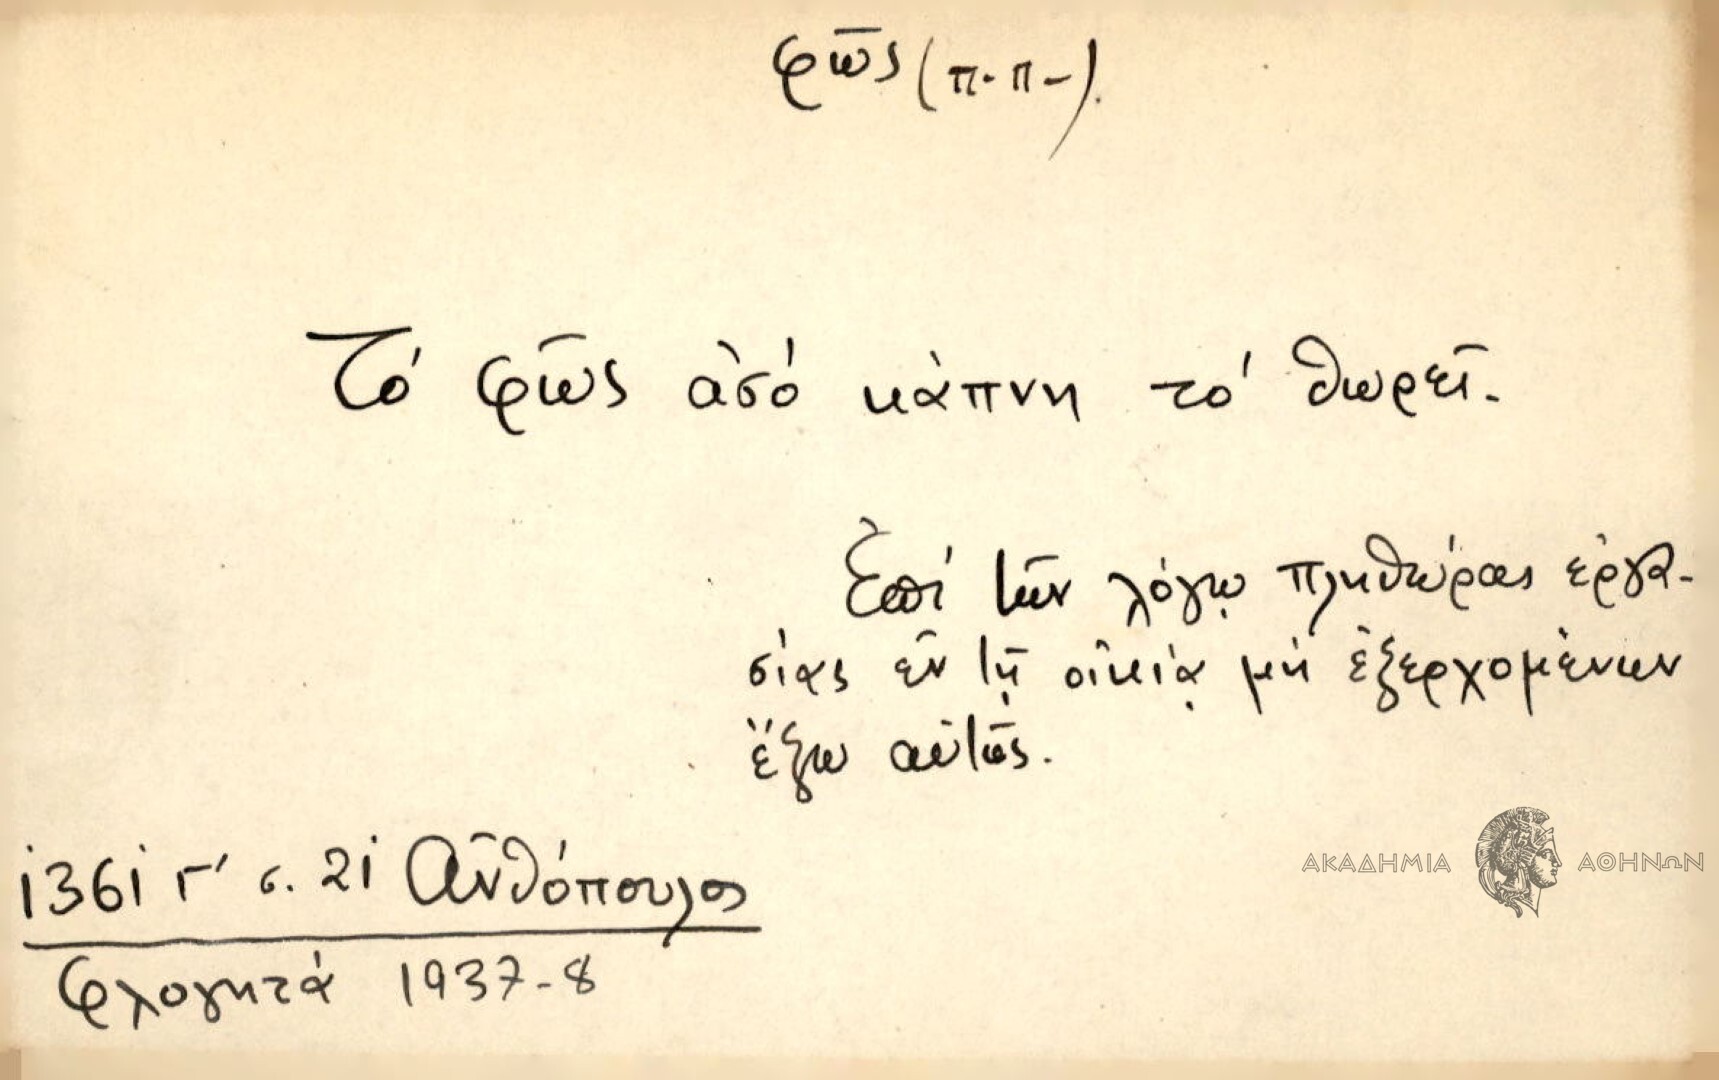 φῶς (π.π-).
Τό φῶς ἀσό κάπνη τό θωρεῖ.
Ἐπί τῶν λόγῳ πληθώρας ἐργα-
σίας ἐν τῇ οἰκίᾳ μή ἐξερχομένων
ἔξω αὐτῆς.
1361 Γ' σ. 21 Ἀνθόπουλος
Φλογητά 1937-8
ΑΚΑΔΗΜΙΑ ΑΘΗΝΩΝ